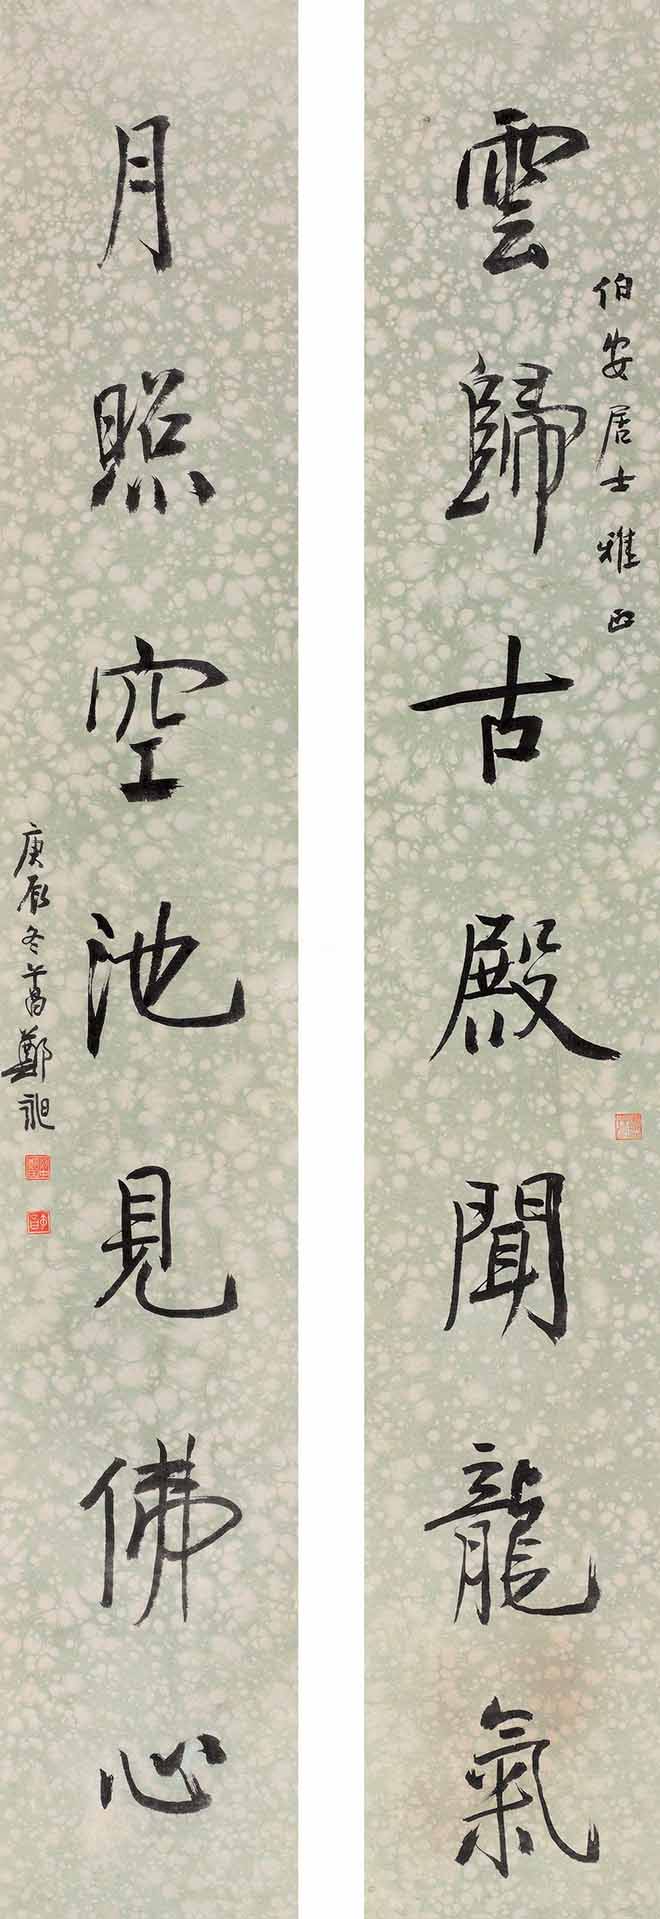 伯安居士雅正
雲歸古殿聞龍氣
月照空池見佛心
庚辰冬午昌鄭昶